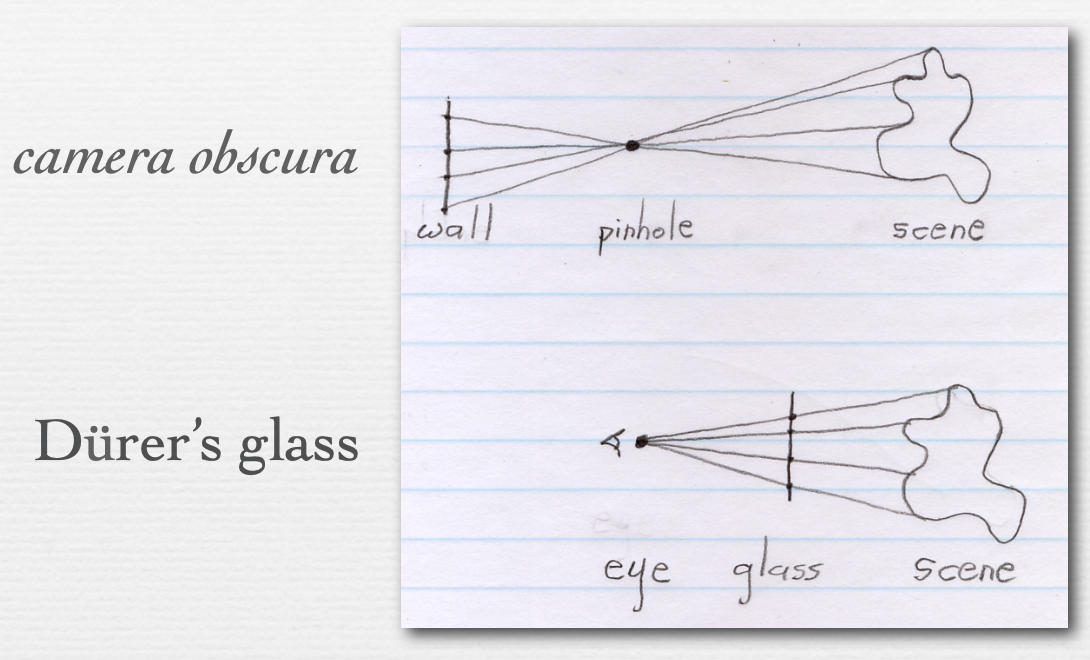 camera obscura
wall pinhole scene
Dürer's glass
eye glass scene